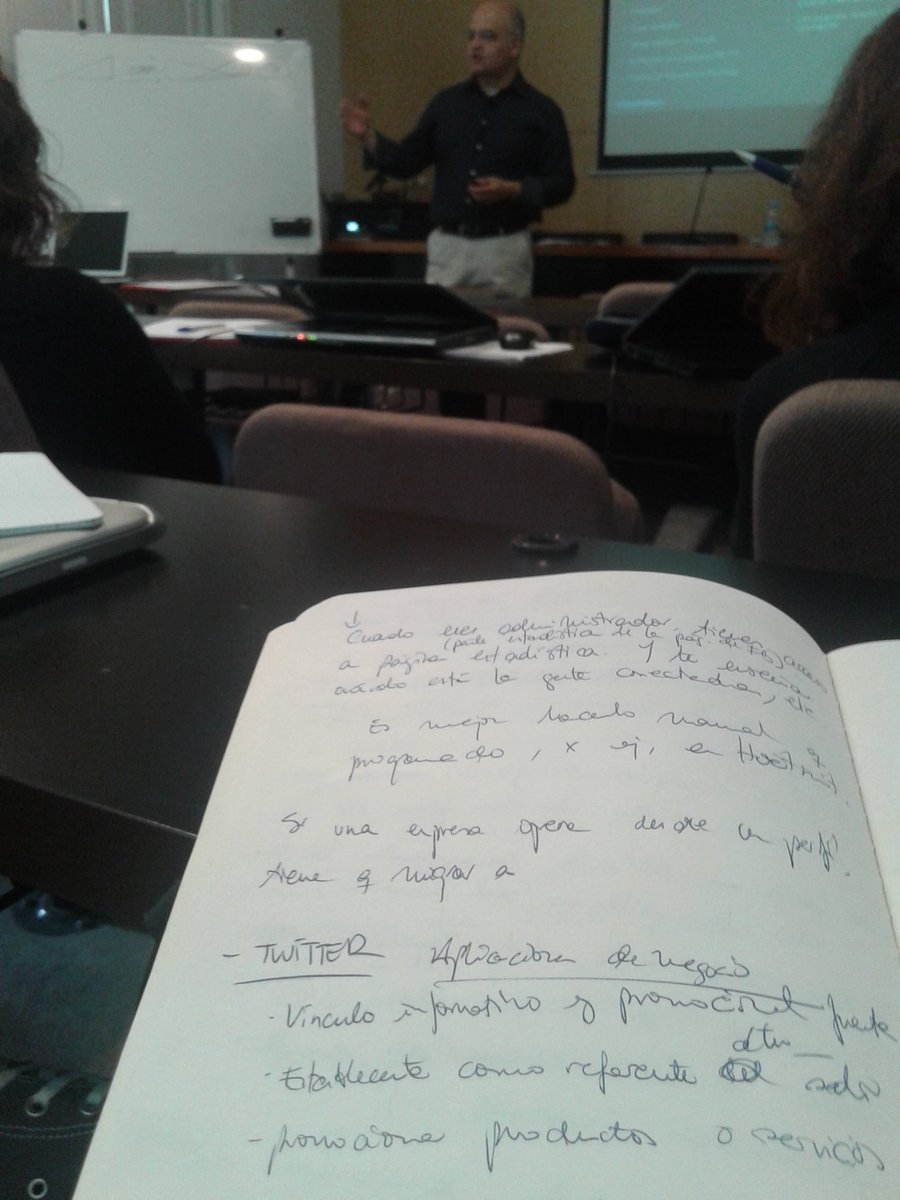 Cuado eres administrador, tienes acceso
(parte estadística de la pág. de FB)
a página estadística. Y te enseña
cuándo está la gente conectada, etc
Es mejor hacerlo manual q
programado, x ej, en Hootsuit.
Si una empresa opera desde un perfil,
tiene q migrar a
- TWITTER Aplicaciones de negocio
· Vínculo informativo y promocional fuerte
· Establecerte como referente dtro del sector
- promociona productos o servicios